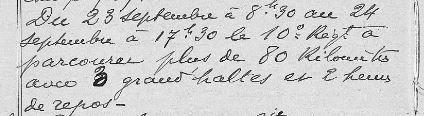 Du 23 septembre à 8h30 au 24
septembre à 17h30 le 10e Regt a
parcouru plus de 80 Kilomètres
avec 3 grand haltes et 2 heures
de repos –